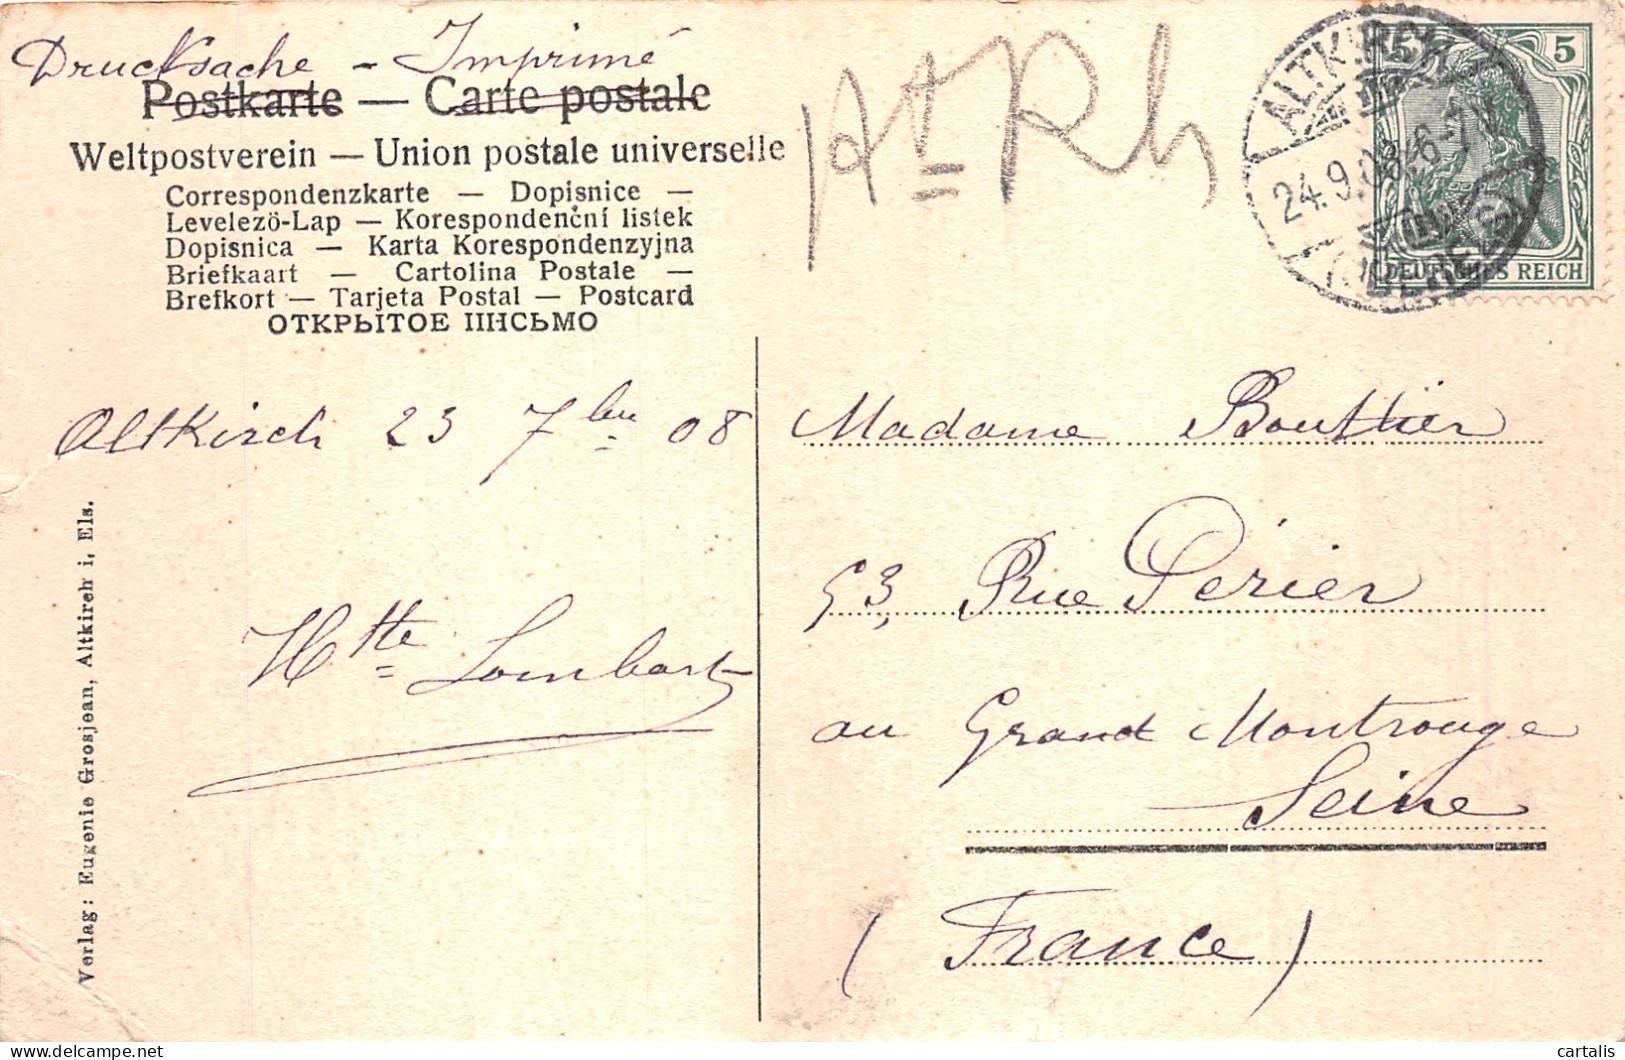 Drucksache - Imprimé
Postkarte — Carte postale
Weltpostverein — Union postale universelle
Correspondenzkarte — Dopisnice —
Levelezö-Lap — Korespondenční listek
Dopisnica — Karta Korespondenzyjna
Briefkaart — Cartolina Postale —
Brefkort — Tarjeta Postal — Postcard
ОТКРЫТОЕ ПИСЬМО
ALTKIRCH
24.9.08. 6-7
5 5
DEUTSCHES REICH
Altkirch 23 7bre 08
Htte Lombart
Verlag: Eugenie Grosjean, Altkirch i. Els.
Madame Bouthier
53, Rue Périer
au Grand Montrouge
Seine
(France)
cartalis